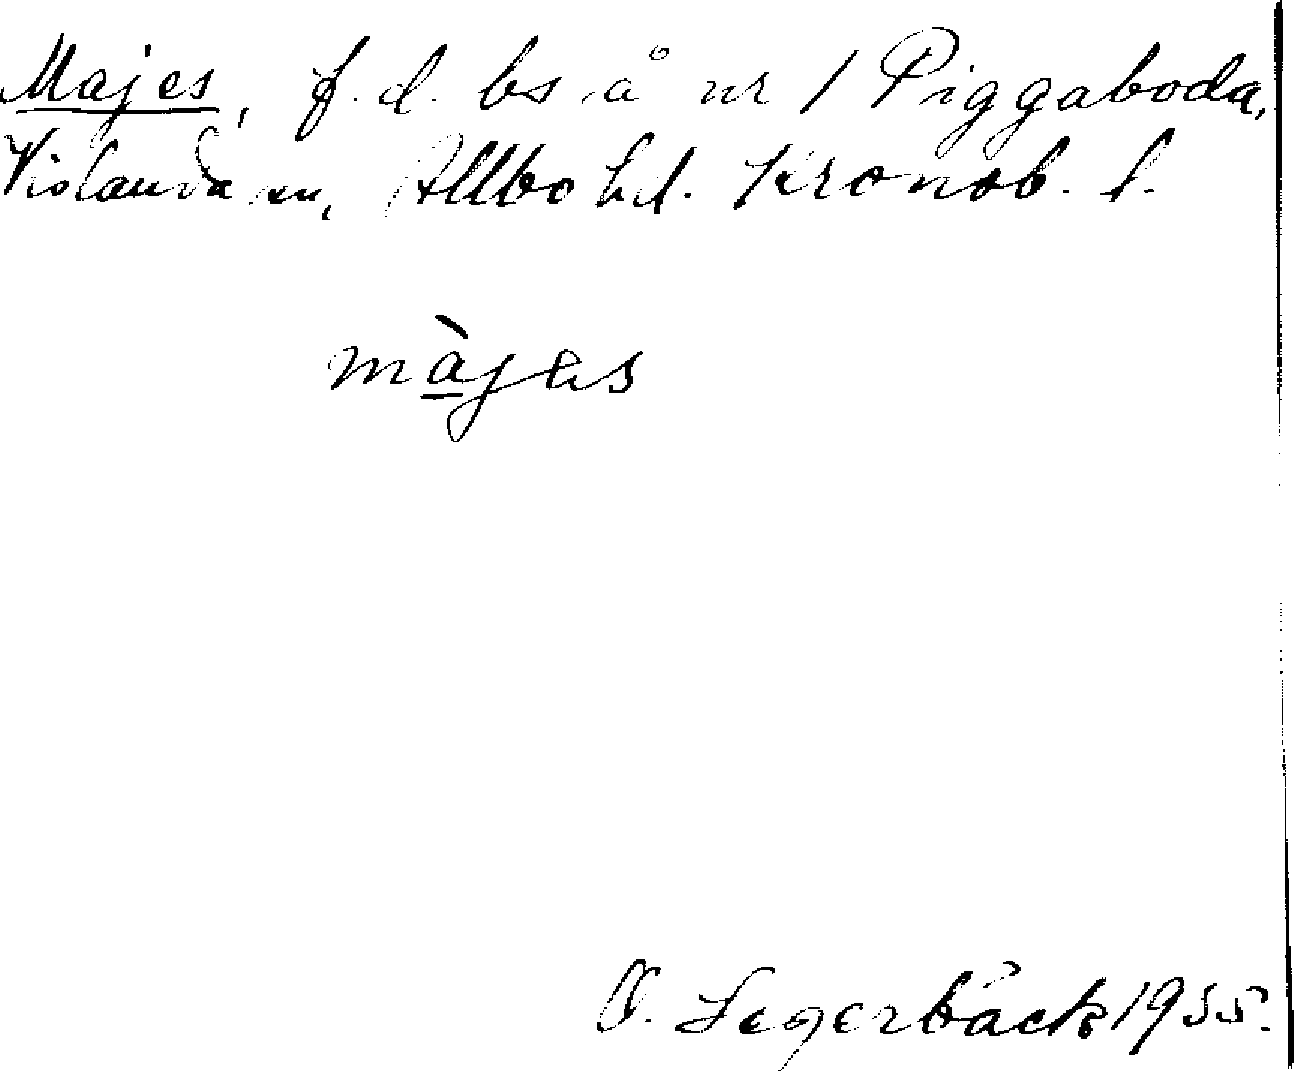 Majes, f.d. bs å nr 1 Piggaboda,
Vislanda sn, Allbo hd. Kronob. l.
màjəs
O. Segerbäck 1955.